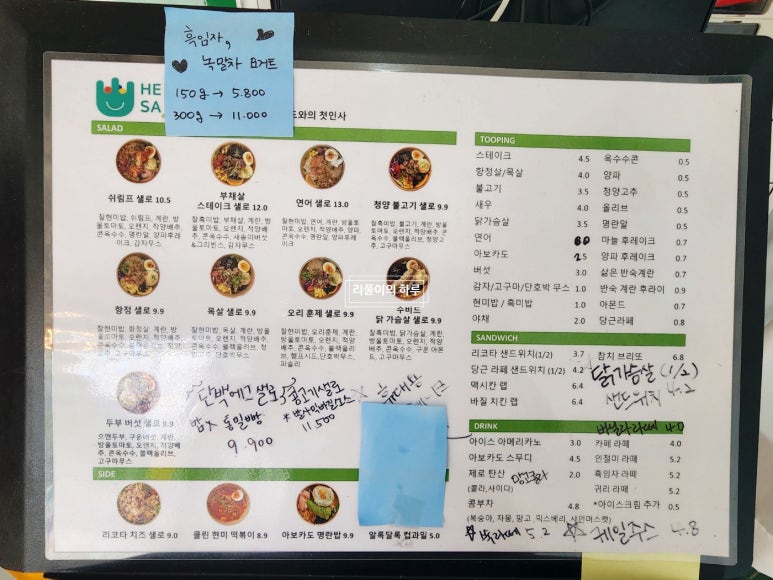 흑임자,
녹말차 요거트
150g → 5.800
300g → 11.000
HE
SA
드와의 첫인사
SALAD
쉬림프 샐로 10.5
찰현미밥, 쉬림프, 계란, 방
울토마토, 오렌지, 적양배추,
콘옥수수, 명란알, 양파후레
이크, 감자무스
부채살
스테이크 샐로 12.0
찰흑미밥, 부채살, 계란, 방
울토마토, 오렌지, 적양배추,
콘옥수수, 새송이버섯
&그린빈스, 감자무스
연어 샐로 13.0
찰현미밥, 연어, 계란, 방울토
마토, 오렌지, 적양배추, 양파,
콘옥수수, 명란알, 양파후레
이크
청양 불고기 샐로 9.9
찰흑미밥, 불고기, 계란, 방울
토마토, 오렌지, 적양배추, 콘
옥수수, 블랙올리브, 청양고
추, 고구마무스
항정 샐로 9.9
찰현미밥, 항정살, 계란, 방
울토마토, 오렌지, 적양배추,
콘옥수수, 블랙올리브,
고구마무스
목살 샐로 9.9
찰흑미밥, 목살, 계란, 방울
토마토, 오렌지, 적양배추,
콘옥수수, 블랙올리브, 청양고
추, 단호박무스
오리 훈제 샐로 9.9
찰현미밥, 오리훈제, 계란, 방
울토마토, 오렌지, 적양배추,
콘옥수수, 블랙올리브,
햄프시드, 단호박무스,
파슬리
수비드
닭 가슴살 샐로 9.9
찰흑미밥, 닭가슴살, 계란, 방
울토마토, 오렌지, 적양배추,
콘옥수수, 구운 아몬
드, 고구마무스
리뮬이의 하루
두부 버섯 샐로 9.9
오맨두부, 구운버섯, 계란,
방울토마토, 오렌지, 적양배
추, 콘옥수수, 블랙올리브,
고구마무스
단백에그 샐로
밥 X 통밀빵
9.900
불고기샐로
11.500
SIDE
리코타 치즈 샐로 9.0
클린 현미 떡볶이 8.9
아보카도 명란밥 9.9
알록달록 컵과일 5.0
TOOPING
스테이크 4.5 옥수수콘 0.5
항정살/목살 4.0 양파 0.5
불고기 3.5 청양고추 0.5
새우 4.0 올리브 0.5
닭가슴살 3.5 명란알 0.5
연어 6.0 마늘 후레이크 0.7
아보카도 2.5 양파 후레이크 0.7
버섯 3.0 삶은 반숙계란 0.7
감자/고구마/단호박 무스 1.0 반숙 계란 후라이 0.9
현미밥 / 흑미밥 1.0 아몬드 0.7
야채 2.0 당근라페 0.8
SANDWICH
리코타 샌드위치(1/2) 3.7 참치 브리또 6.8
당근 라페 샌드위치 (1/2) 4.2 닭가슴살 (1/2)
멕시칸 랩 6.4 샌드위치 4.2
바질 치킨 랩 6.4
DRINK 바닐라라떼 4.0
아이스 아메리카노 3.0 카페 라떼 4.0
아보카도 스무디 4.5 인절미 라떼 5.2
제로 탄산 2.0 흑임자 라떼 5.2
(콜라,사이다) 귀리 라떼 5.2
콤부차 4.8 *아이스크림 추가 0.5
(복숭아, 자몽, 망고, 믹스베리, 샤인머스켓)
5.2 케일주스 4.8